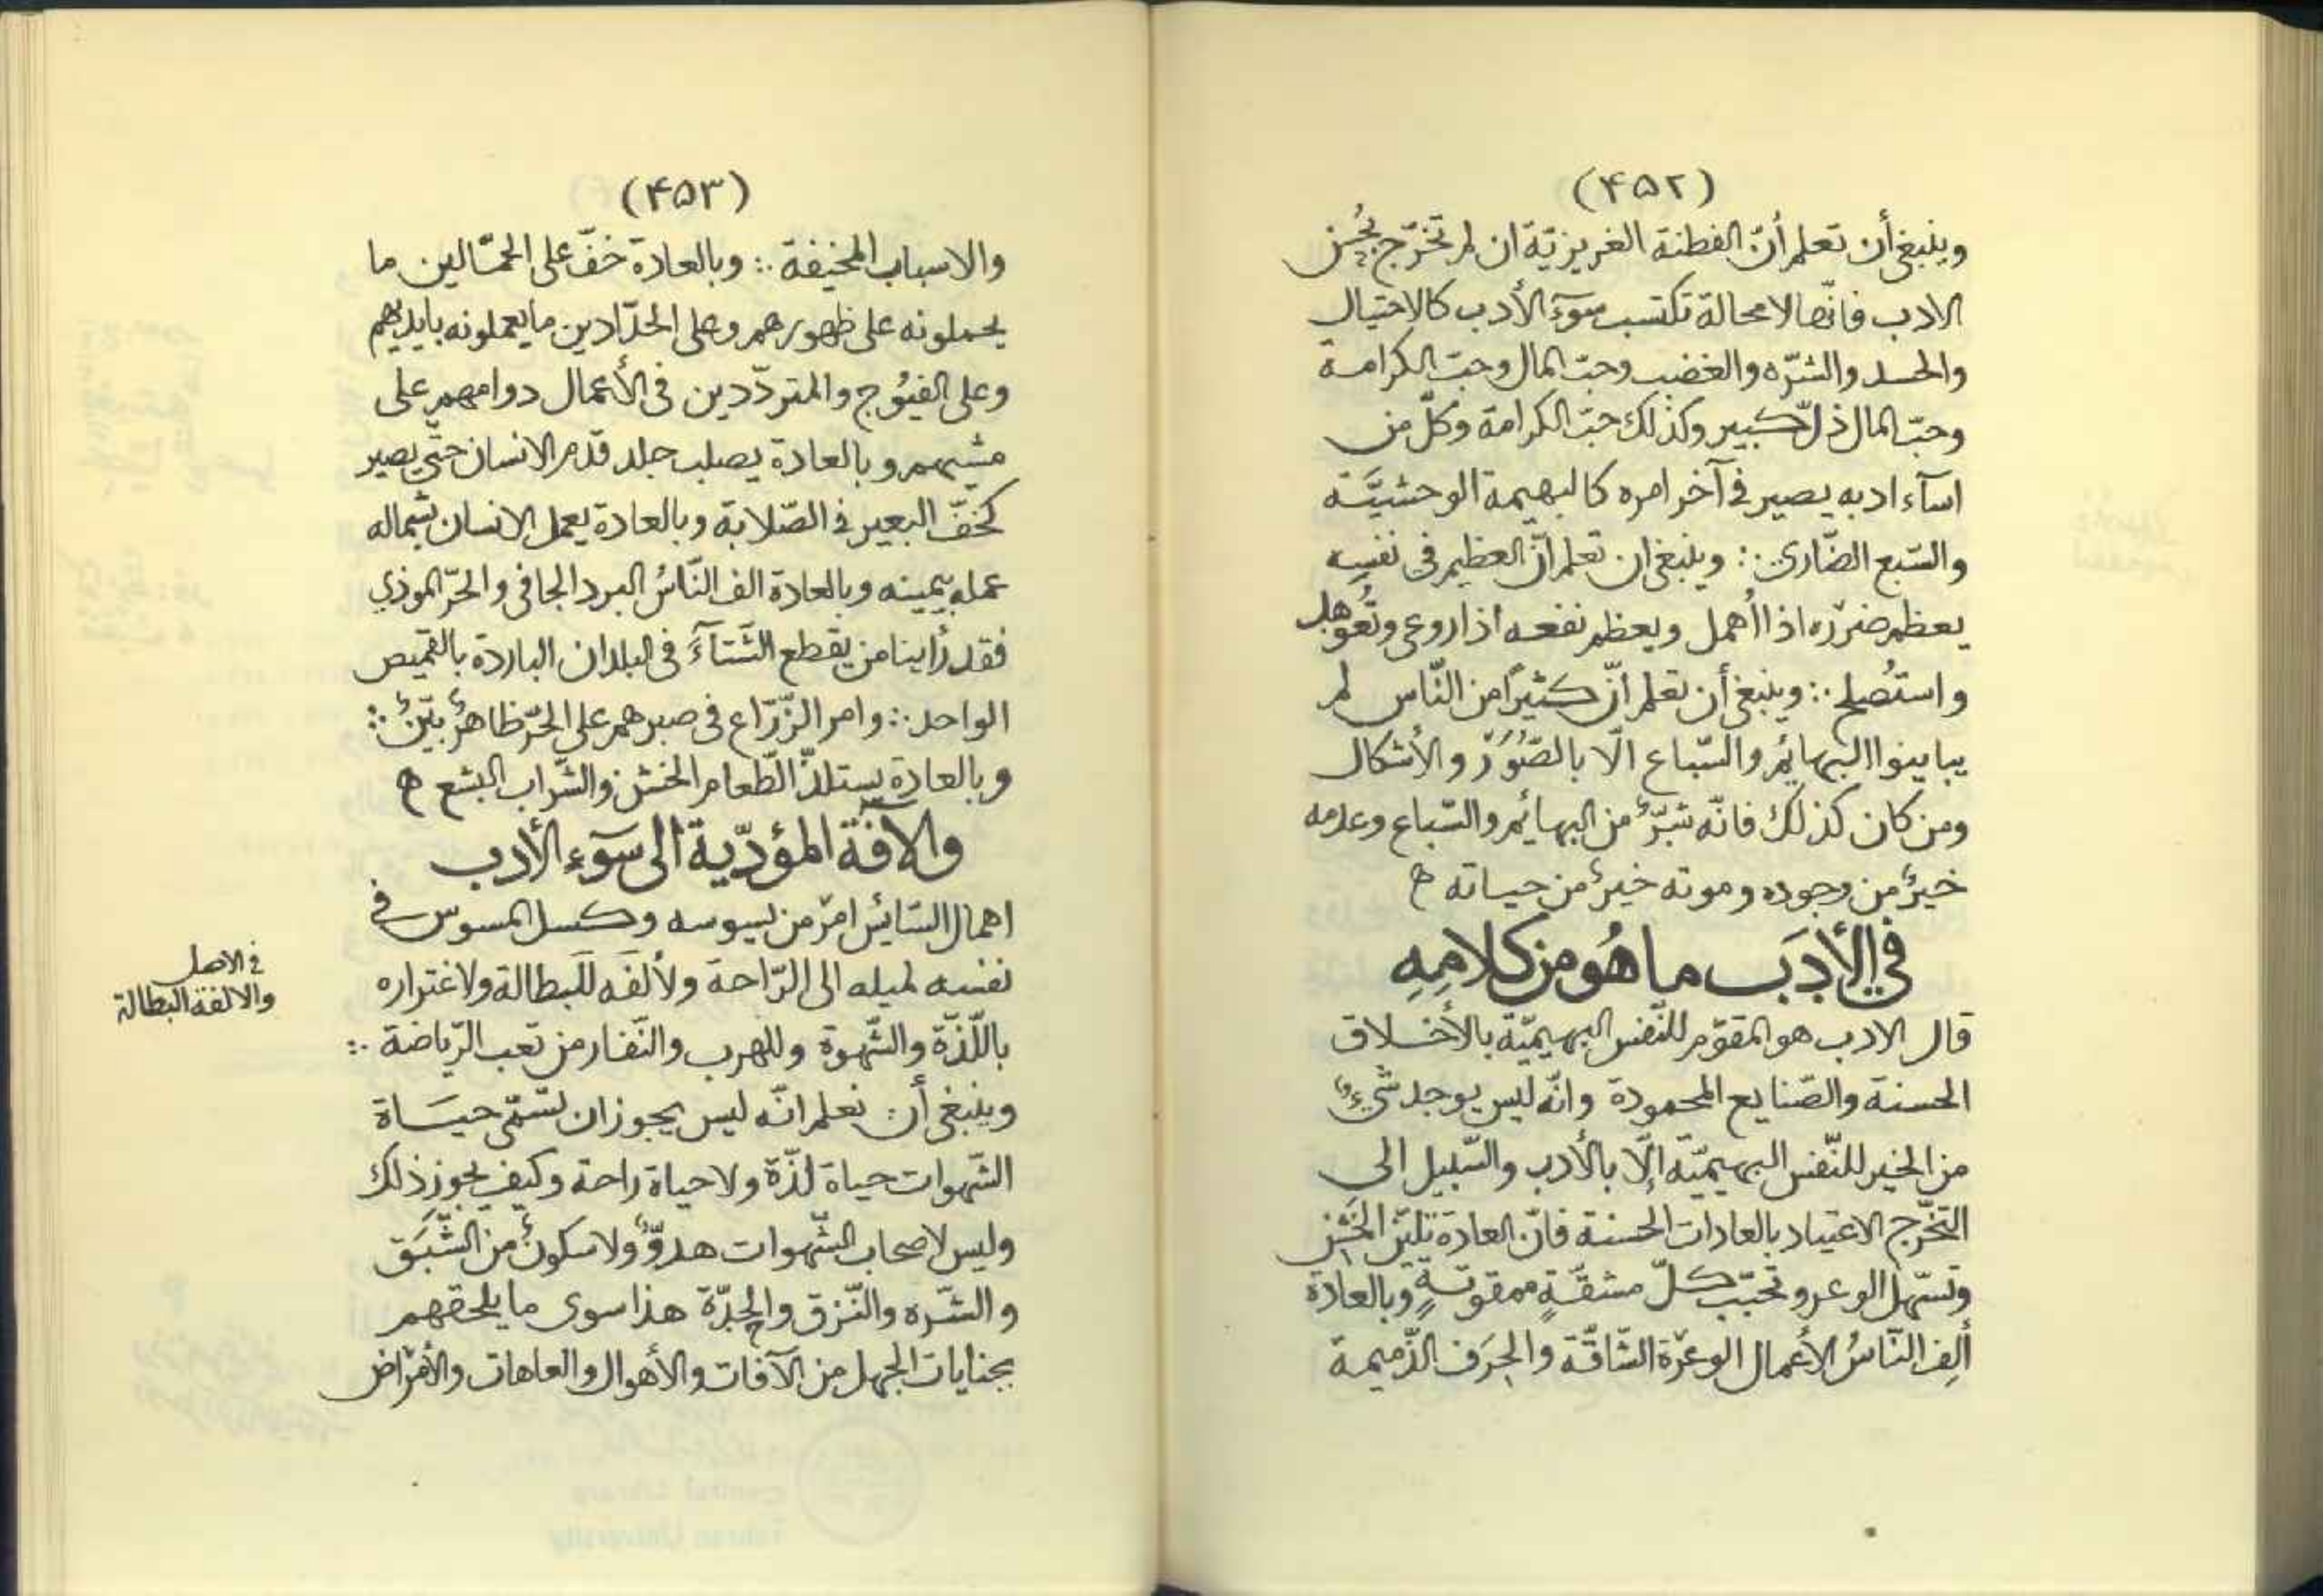 (۴۵۲)
وينبغي أن تعلم أنّ الفطنة الغريزيّة ان لم تخرّج بحُسن
الادب فانّها لا محالة تكتسب سوٓء الأدب كالاحتيال
والحسد والشرّه والغضب وحبّ المال وحبّ الكرامة
وحبّ المال ذلّ كبير وكذلك حبّ الكرامة وكلّ من
اسآء ادبه يصير في آخر امره كالبهيمة الوحشيَّة
والسّبع الضّاري ∴ وينبغي ان تعلم انّ العظيم فى نفسِهِ
يعظم ضرره اذا أُهمل ويعظم نفعه اذا روعى وتُعوهد
واستُصلح ∴ وينبغي أن تعلم انّ كثيرًا من النّاس لم
يباينوا البهائم والسّباع الّا بالصّوَر والأشكال
ومن كان كذلك فانّه شرّ من البهائم والسّباع وعدمه
خيرٌ من وجوده وموته خيرٌ من حياته ﻫ
في الأدَب ما هُو من كلامِهِ
قال الادب هو المقوّم للنّفس البهيميّة بالأخلاق
الحسنة والصّنايع المحمودة وانّه ليس يوجد شيءٌ
من الخير للنّفس البهيميّة إلّا بالأدب والسّبيل الى
التخّرج الاعتياد بالعادات الحسنة فانّ العادة تليّن الخَشِن
وتسهّل الوعر وتحبّب كلّ مشقّةٍ ممقوتةٍ وبالعادة
ألِف النّاسُ الأعمال الوعرة الشّاقّة والحِرَف الذّميمة
(۴۵۳)
والاسباب المخيفة ∴ وبالعادة خفّ على الحمّالين ما
يحملونه على ظهورهم وعلى الحدّادين ما يعملونه بايديهم
وعلى الفيُوج والمتردّدين فى الأعمال دوامهم على
مشيهم وبالعادة يصلب جلد قدم الانسان حتّى يصير
كخفّ البعير في الصّلابة وبالعادة يعمل الانسان بشماله
عمله بيمينه وبالعادة الف النّاسُ البرد الجافى والحرّ الموذي
فقد رأينا من يقطع الشّتآءَ فى البلدان الباردة بالقميص
الواحد ∴ وامر الزّرّاع فى صبرهم على الحرّ ظاهرٌ بيّنٌ ∴
وبالعادة يستلذّ الطّعام الخشن والشّراب البشع ﻫ
والآفة المؤدّية الى سوٓء الأدب
اهمال السّائس امر من يسوسه وكسل المسوس في
نفسه لميله الى الرّاحة ولألفَه للبطالة ولاغتراره
باللّذّة والشّهوة وللهرب والنّفار من تعب الرّياضة ∴
وينبغى أن تعلم انّه ليس يجوز ان تسّمّى حيَاة
الشّهوات حياة لذّة ولا حياة راحة وكيف يجوز ذلك
وليس لاصحاب الشّهوات هدوٌّ ولا سكونٌ من الشَّبَق
والشّره والنّزق والحِدّة هذا سوى ما يلحقهم
بجنايات الجهل من الآفات والأهوال والعاهات والأمراض
في الاصل
والالفة البطالة